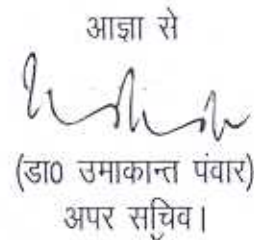 आज्ञा से
(डा0 उमाकान्त पंवार)
अपर सचिव।